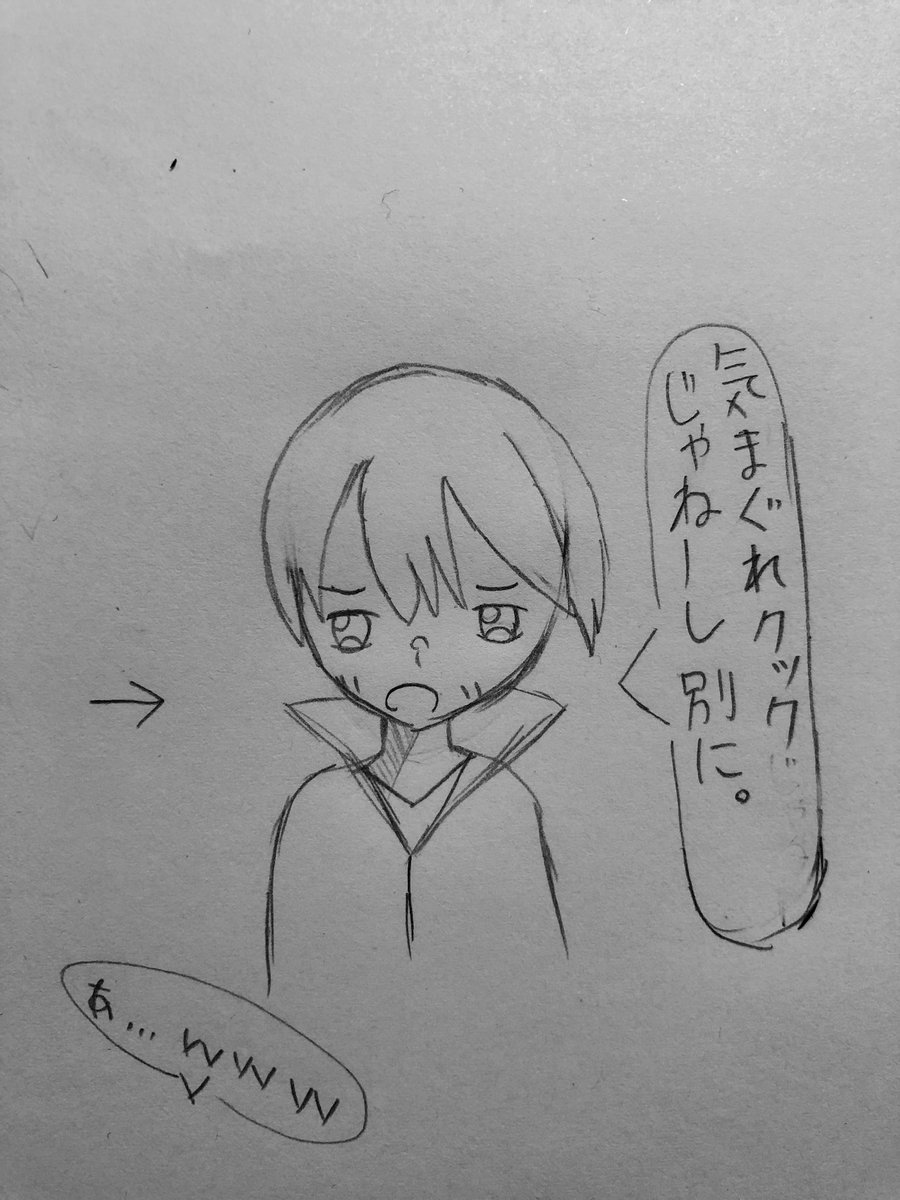 気まぐれクック゛
じゃねーし別に。
あ…www